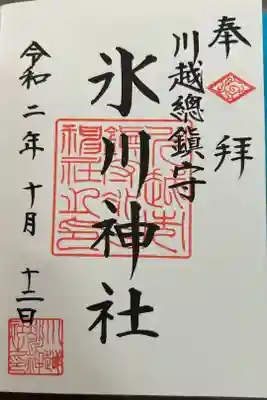 奉拝
川越總鎮守
氷川神社
令和二年十月十二日